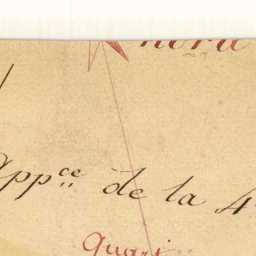 nord
App.ce de la 4
Quar